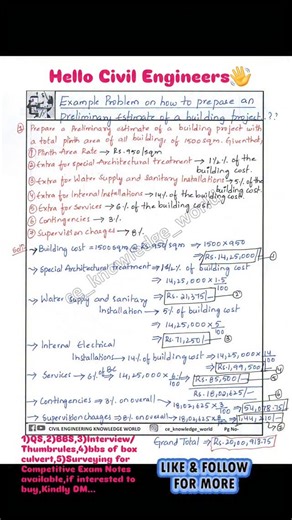 Hello Civil Engineers👋
Example Problem on how to prepare an
Preliminary Estimate of a building project..??
Prepare a Preliminary estimate of a building project with
a total plinth area of all buildings of 1500sqm. Given that,
① Plinth Area Rate → Rs.950/sqm
② Extra for Special Architectural treatment → 1½% of the building cost
③ Extra for Water Supply and Sanitary Installations → 5% of the building cost
④ Extra for Internal Installations → 14% of the building cost
⑤ Extra for Services → 6% of the building cost
⑥ Contingencies → 3%
⑦ Supervision charges → 8%
Soln
→ Building cost = 1500sqm @ Rs.950/sqm ⇒ 1500×950
⇒ Rs.14,25,000/- ①
→ Special Architectural treatment → 1½% of building cost
⇒ 14,25,000 × 1.5/100
⇒ Rs.21,375/- ②
→ Water Supply and Sanitary
Installation → 5% of building cost
⇒ 14,25,000 × 5/100
⇒ Rs.71,250/- ③
→ Internal Electrical
Installations → 14% of building cost ⇒ 14,25,000 × 14/100
⇒ Rs.1,99,500/- ④
→ Services → 6% of BC ⇒ 14,25,000 × 6/100 ⇒ Rs.85,500/- ⑤
⇒ Rs.18,02,625/-
→ Contingencies ⇒ 3% on overall → 18,02,625 × 3/100 ⇒ 54,078.75
→ Supervision charges ⇒ 8% on overall → 18,02,625 × 8/100 ⇒ 1,44,210/-
CIVIL ENGINEERING KNOWLEDGE WORLD ce_knowledge_world Pg No-
Grand Total ⇒ Rs-20,00,913.75
ce_knowledge_world
1)QS,2)BBS,3)Interview/
Thumbrules,4)bbs of box
culvert,5)Surveying for
Competitive Exam Notes
available,if interested to
buy,Kindly DM...
LIKE & FOLLOW
FOR MORE